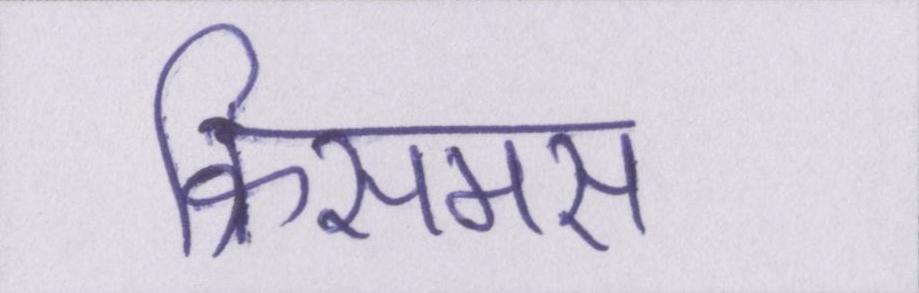 क्रिसमस